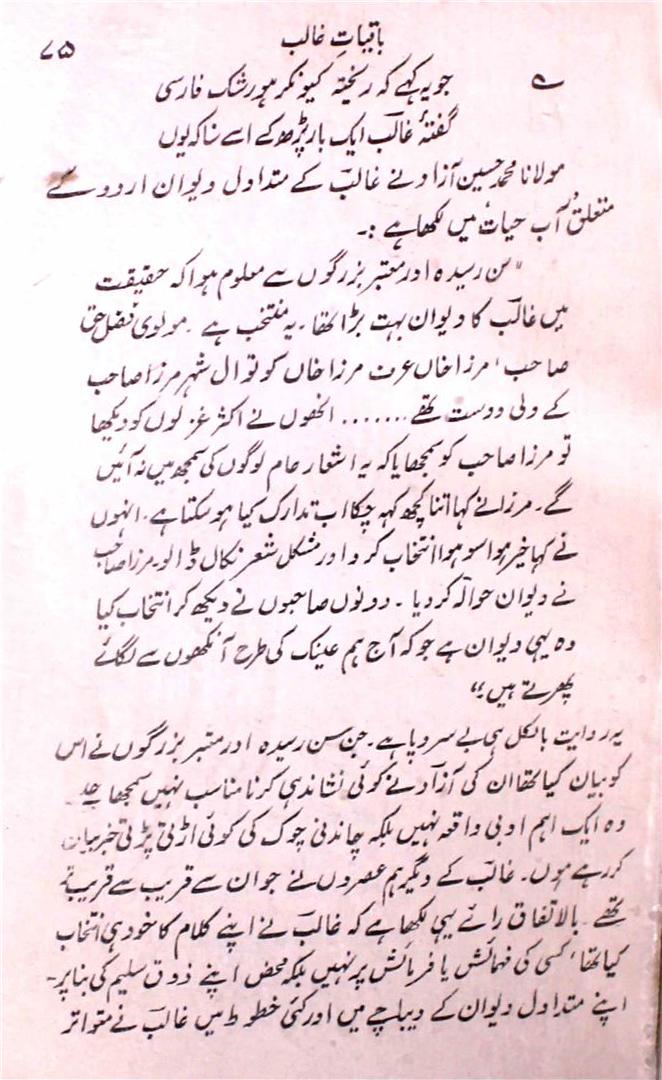 باقیاتِ غالب
۷۵
جو یہ کہے کہ ریختہ کیونکر ہو رشک فارسی
گفتۂ غالبؔ ایک بار پڑھ کے اسے سنا کہ یوں
مولانا محمد حسین آزاد نے غالبؔ کے متداول دیوان اردو کے
متعلق آب حیات میں لکھا ہے :۔
"سن رسیدہ اور معتبر بزرگوں سے معلوم ہوا کہ حقیقت
میں غالبؔ کا دیوان بہت بڑا تھا۔ یہ منتخب ہے ۔ مولوی فضل حق
صاحب ' مرزا خاں عرف مرزا خاں کوتوال شہر مرزا صاحب
کے دلی دوست تھے ....... انھوں نے اکثر غزلوں کو دیکھا
تو مرزا صاحب کو سمجھایا کہ یہ اشعار عام لوگوں کی سمجھ میں نہ آئیں
گے۔ مرزا نے کہا اتنا کچھ کہہ چکا اب تدارک کیا ہو سکتا ہے۔ انہوں
نے کہا خیر ہوا سو ہوا انتخاب کرو اور مشکل شعر نکال ڈالو۔ مرزا صاحب
نے دیوان حوالہ کر دیا ۔ دونوں صاحبوں نے دیکھ کر انتخاب کیا
وہ یہی دیوان ہے جو کہ آج ہم عینک کی طرح آنکھوں سے لگائے
پھرتے ہیں"
یہ روایت بالکل ہی بے سروپا ہے۔ جن سن رسیدہ اور معتبر بزرگوں نے اس
کو بیان کیا تھا ان کی آزاد نے کوئی نشاندہی کرنا مناسب نہیں سمجھا جیسے
وہ ایک اہم ادبی واقعہ نہیں بلکہ چاندنی چوک کی کوئی اڑتی پڑتی خبر بیان
کر رہے ہوں۔ غالبؔ کے دیگر ہم عصروں نے جو ان سے قریب سے قریب تر
تھے۔ بالاتفاق رائے یہی لکھا ہے کہ غالبؔ نے اپنے کلام کا خود ہی انتخاب
کیا تھا ' کسی کی فہمائش یا فرمائش پر نہیں بلکہ محض اپنے ذوق سلیم کی بنا پر۔
اپنے متداول دیوان کے دیباچے میں اور کئی خطوط میں غالبؔ نے متواتر